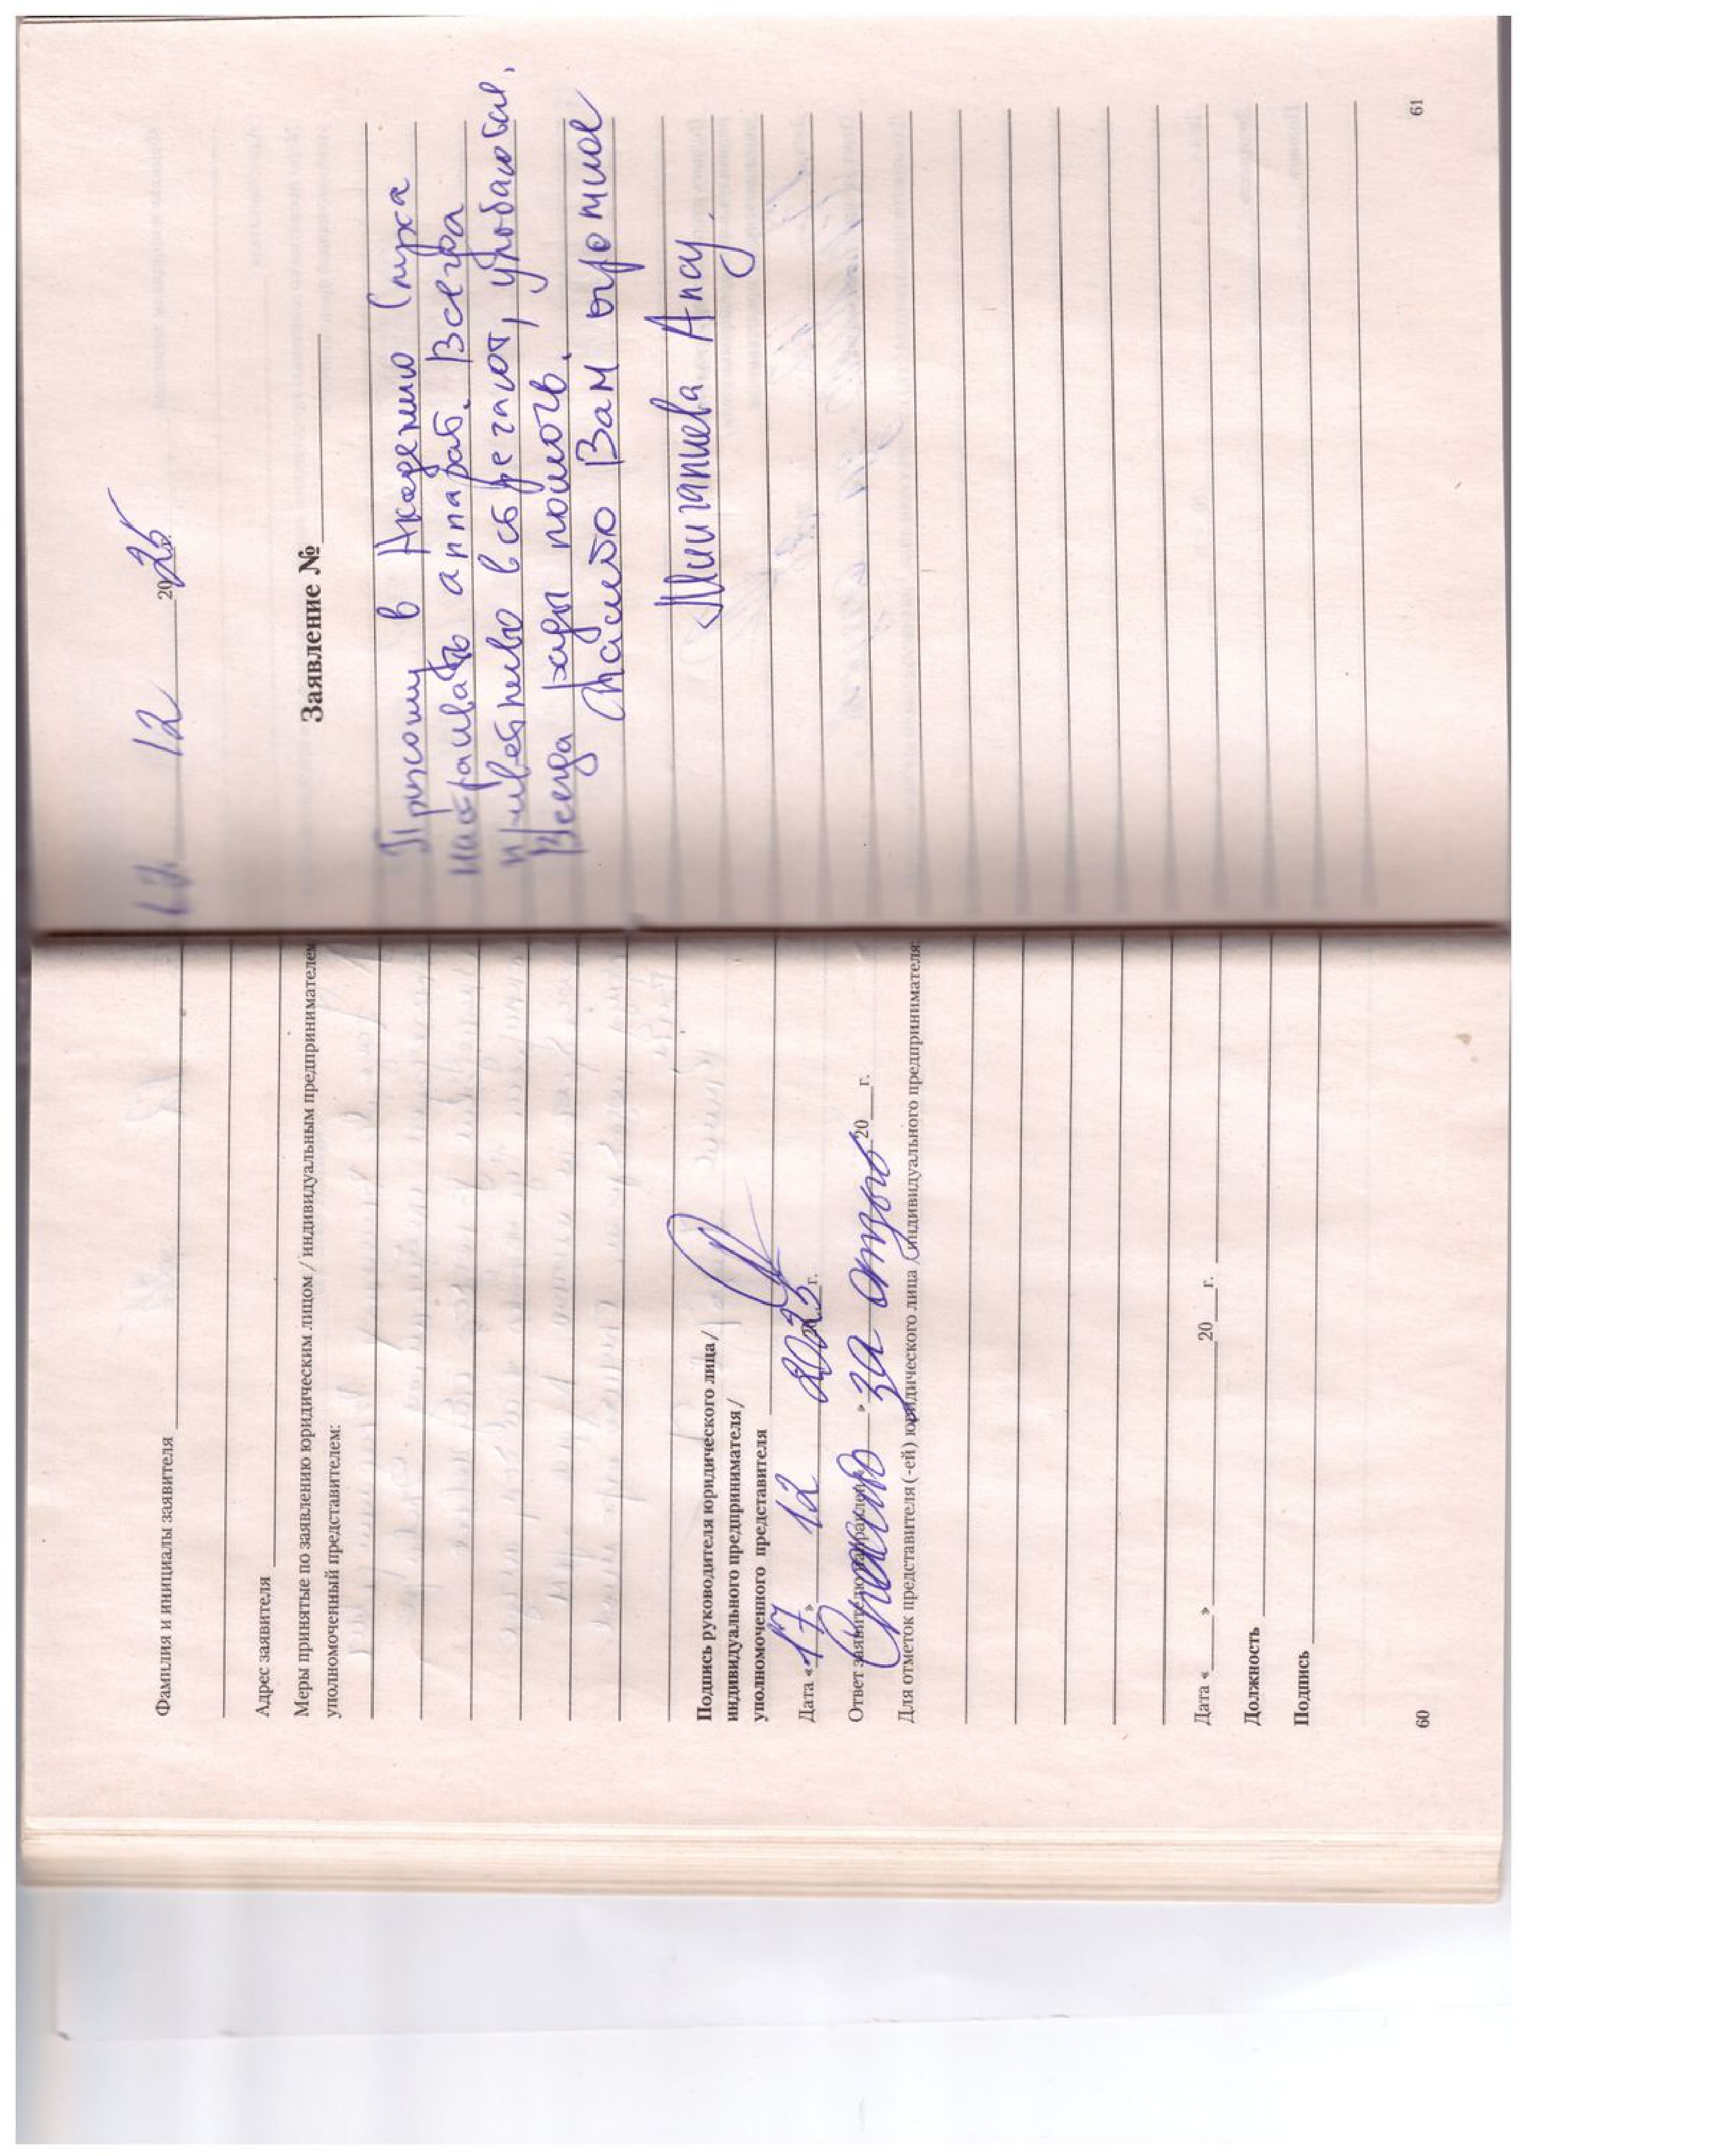 Фамилия и инициалы заявителя
Адрес заявителя
Меры принятые по заявлению юридическим лицом / индивидуальным предпринимателем
уполномоченный представителем:
Подпись руководителя юридического лица /
индивидуального предпринимателя /
уполномоченного представителя
Дата «17» 12 2025 г.
Ответ заявителю направлен « » 20 г.
Спасибо за отзыв
Для отметок представителя (-ей) юридического лица / индивидуального предпринимателя:
Дата « » 20 г.
Должность
Подпись
60
12 2025
Заявление №
Прихожу в Академию Слуха
настраивать аппарат. Всегда
приветливо встречают,
Всегда рады помочь.
Спасибо Вам огромное
61